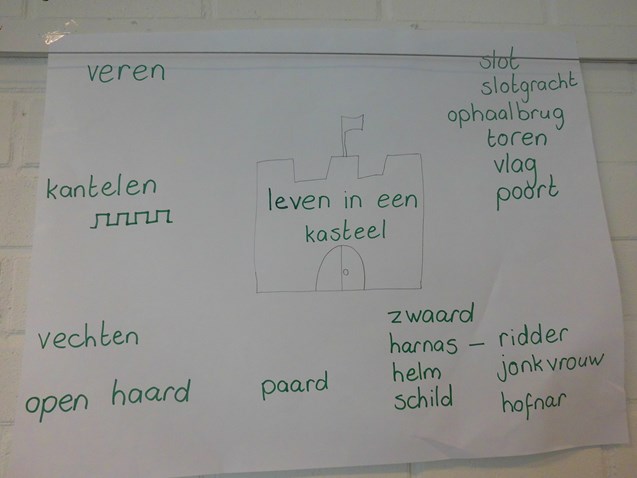 veren
slot
slotgracht
ophaalbrug
toren
vlag
poort
kantelen
leven in een
kasteel
vechten
open haard
paard
zwaard
harnas –
helm
schild
ridder
jonkvrouw
hofnar